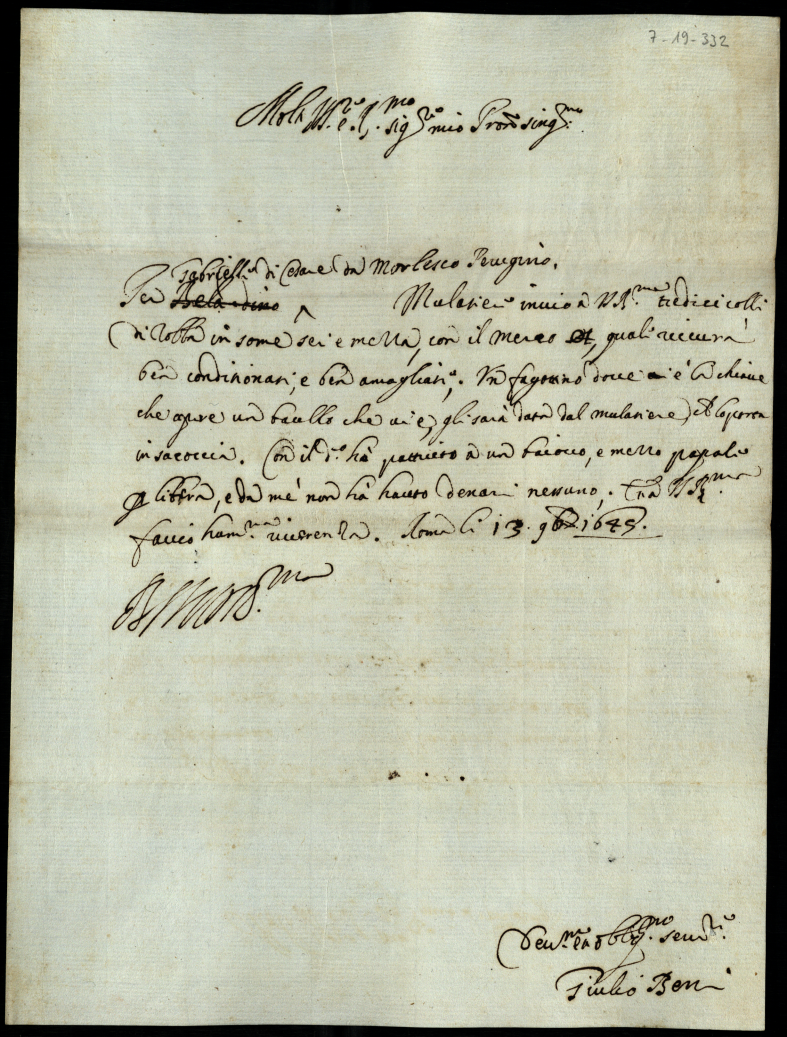 7-19-332
Molt Ill.re e R.mo sig.re mio Pron sing.mo
Gabriello di Cesare da Morlesco Perugino,
Per Belardino Mulatiero invio à V.R.ma tredici colli
di robba in some sei e mezza, con il merco, quali riceverà
ben conditionati, e ben amagliati. Un fagottino dove è la chiave
che apre un baullo che vi è, gli sarà data dal mulatiere, che la porta
in saccoccia. Con il d.o hò pattuito à un baiocco, e mezzo papale
per libbra, e da mè non hà hauto denari nessuno, V.R.ma
faccio hum.ma riverenza. Roma li 13 9bre 1645.
Dev.mo et obblig.mo serv.re
Giulio Berni